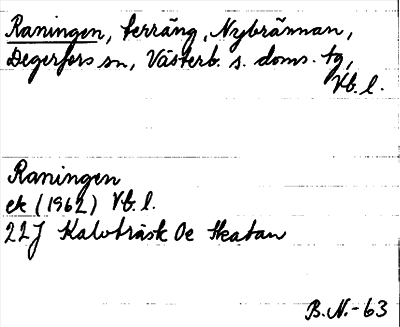 Raningen, terräng, Nybrännan,
Degerfors sn, Västerb. s. doms. tg,
Vb. l.
Raningen
ek (1962) Vb. l.
22J Kalvträsk Oe Skatan
B.N.-63